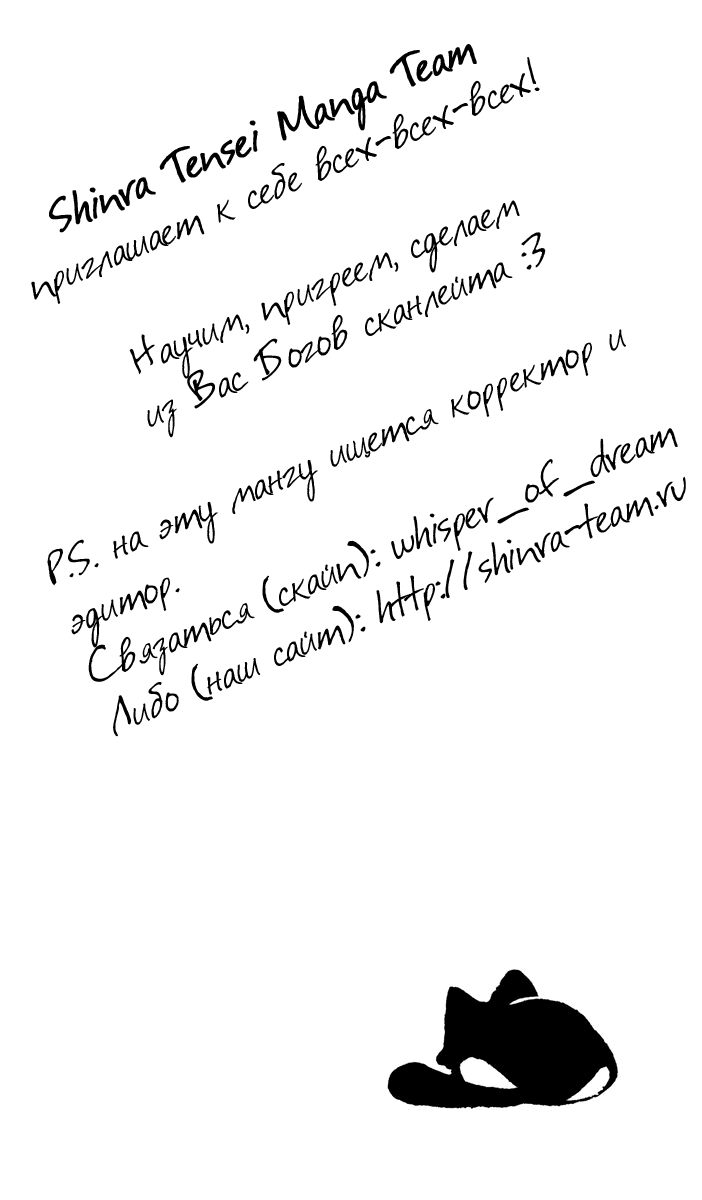 Shinra Tensei Manga Team
приглашает к себе всех-всех-всех!
Научим, пригреем, сделаем
из Вас Богов сканлейта :3
P.S. на эту мангу ищется корректор и
эдитор.
Связаться (скайп): whisper_of_dream
Либо (наш сайт): http://shinra-team.ru